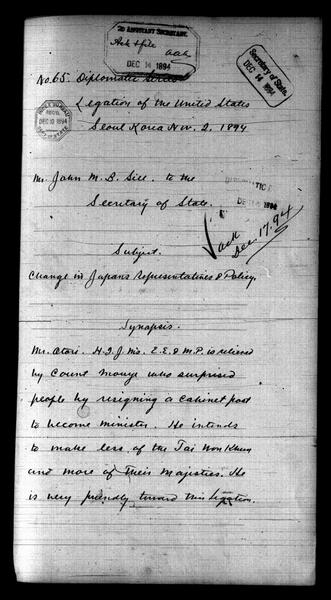 2D ASSISTANT SECRETARY.
Ack & file
AAA
DEC 14 1894
Secretary of State,
DEC 14 1894
No. 65. Diplomatic Series
Legation of the United States
Seoul Korea Nov. 2, 1894
REC'D.
DEC 10 1894
DEPT. OF STATE
Mr. John M. B. Sill. to the
Secretary of State.
1894
ack
Dec. 17. 94
Subject.
Change in Japan's Representatives & Policy.
Synopsis.
Mr. Otori. H. I. J. M's. E. E. & M. P. is relieved
by Count Inouye who surprised
people by resigning a cabinet post
to become minister. He intends
to make less of the Tai Won Khun
and more of Their Majesties. He
is very friendly toward this legation.